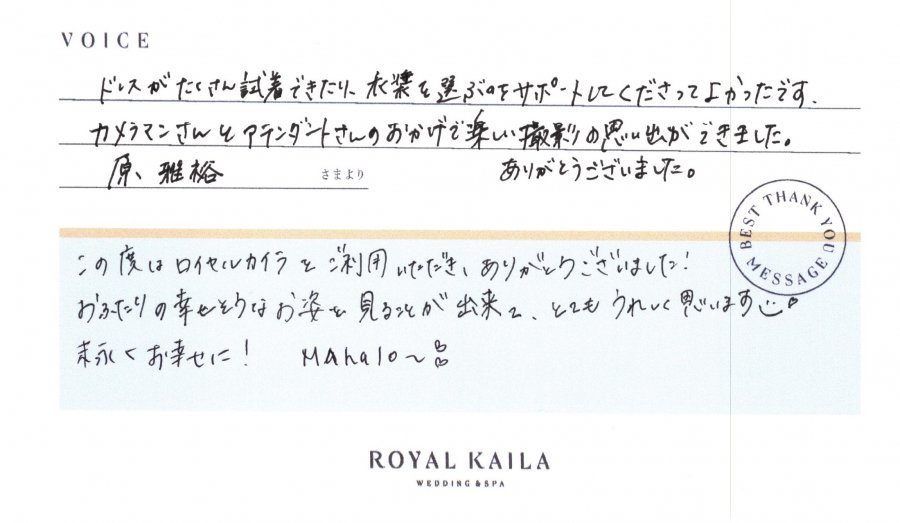 VOICE
ドレスがたくさん試着できたり、衣装を選ぶのをサポートしてくださってよかったです。
カメラマンさんとアテンダントさんのおかげで楽しい撮影の思い出ができました。
原、雅裕 さまより ありがとうございました。
BEST THANK YOU MESSAGE
この度はロイヤルカイラをご利用いただき、ありがとうございました!
おふたりの幸せそうなお姿を見ることが出来て、とてもうれしく思います
末永くお幸せに! Mahalo~
ROYAL KAILA
WEDDING & SPA